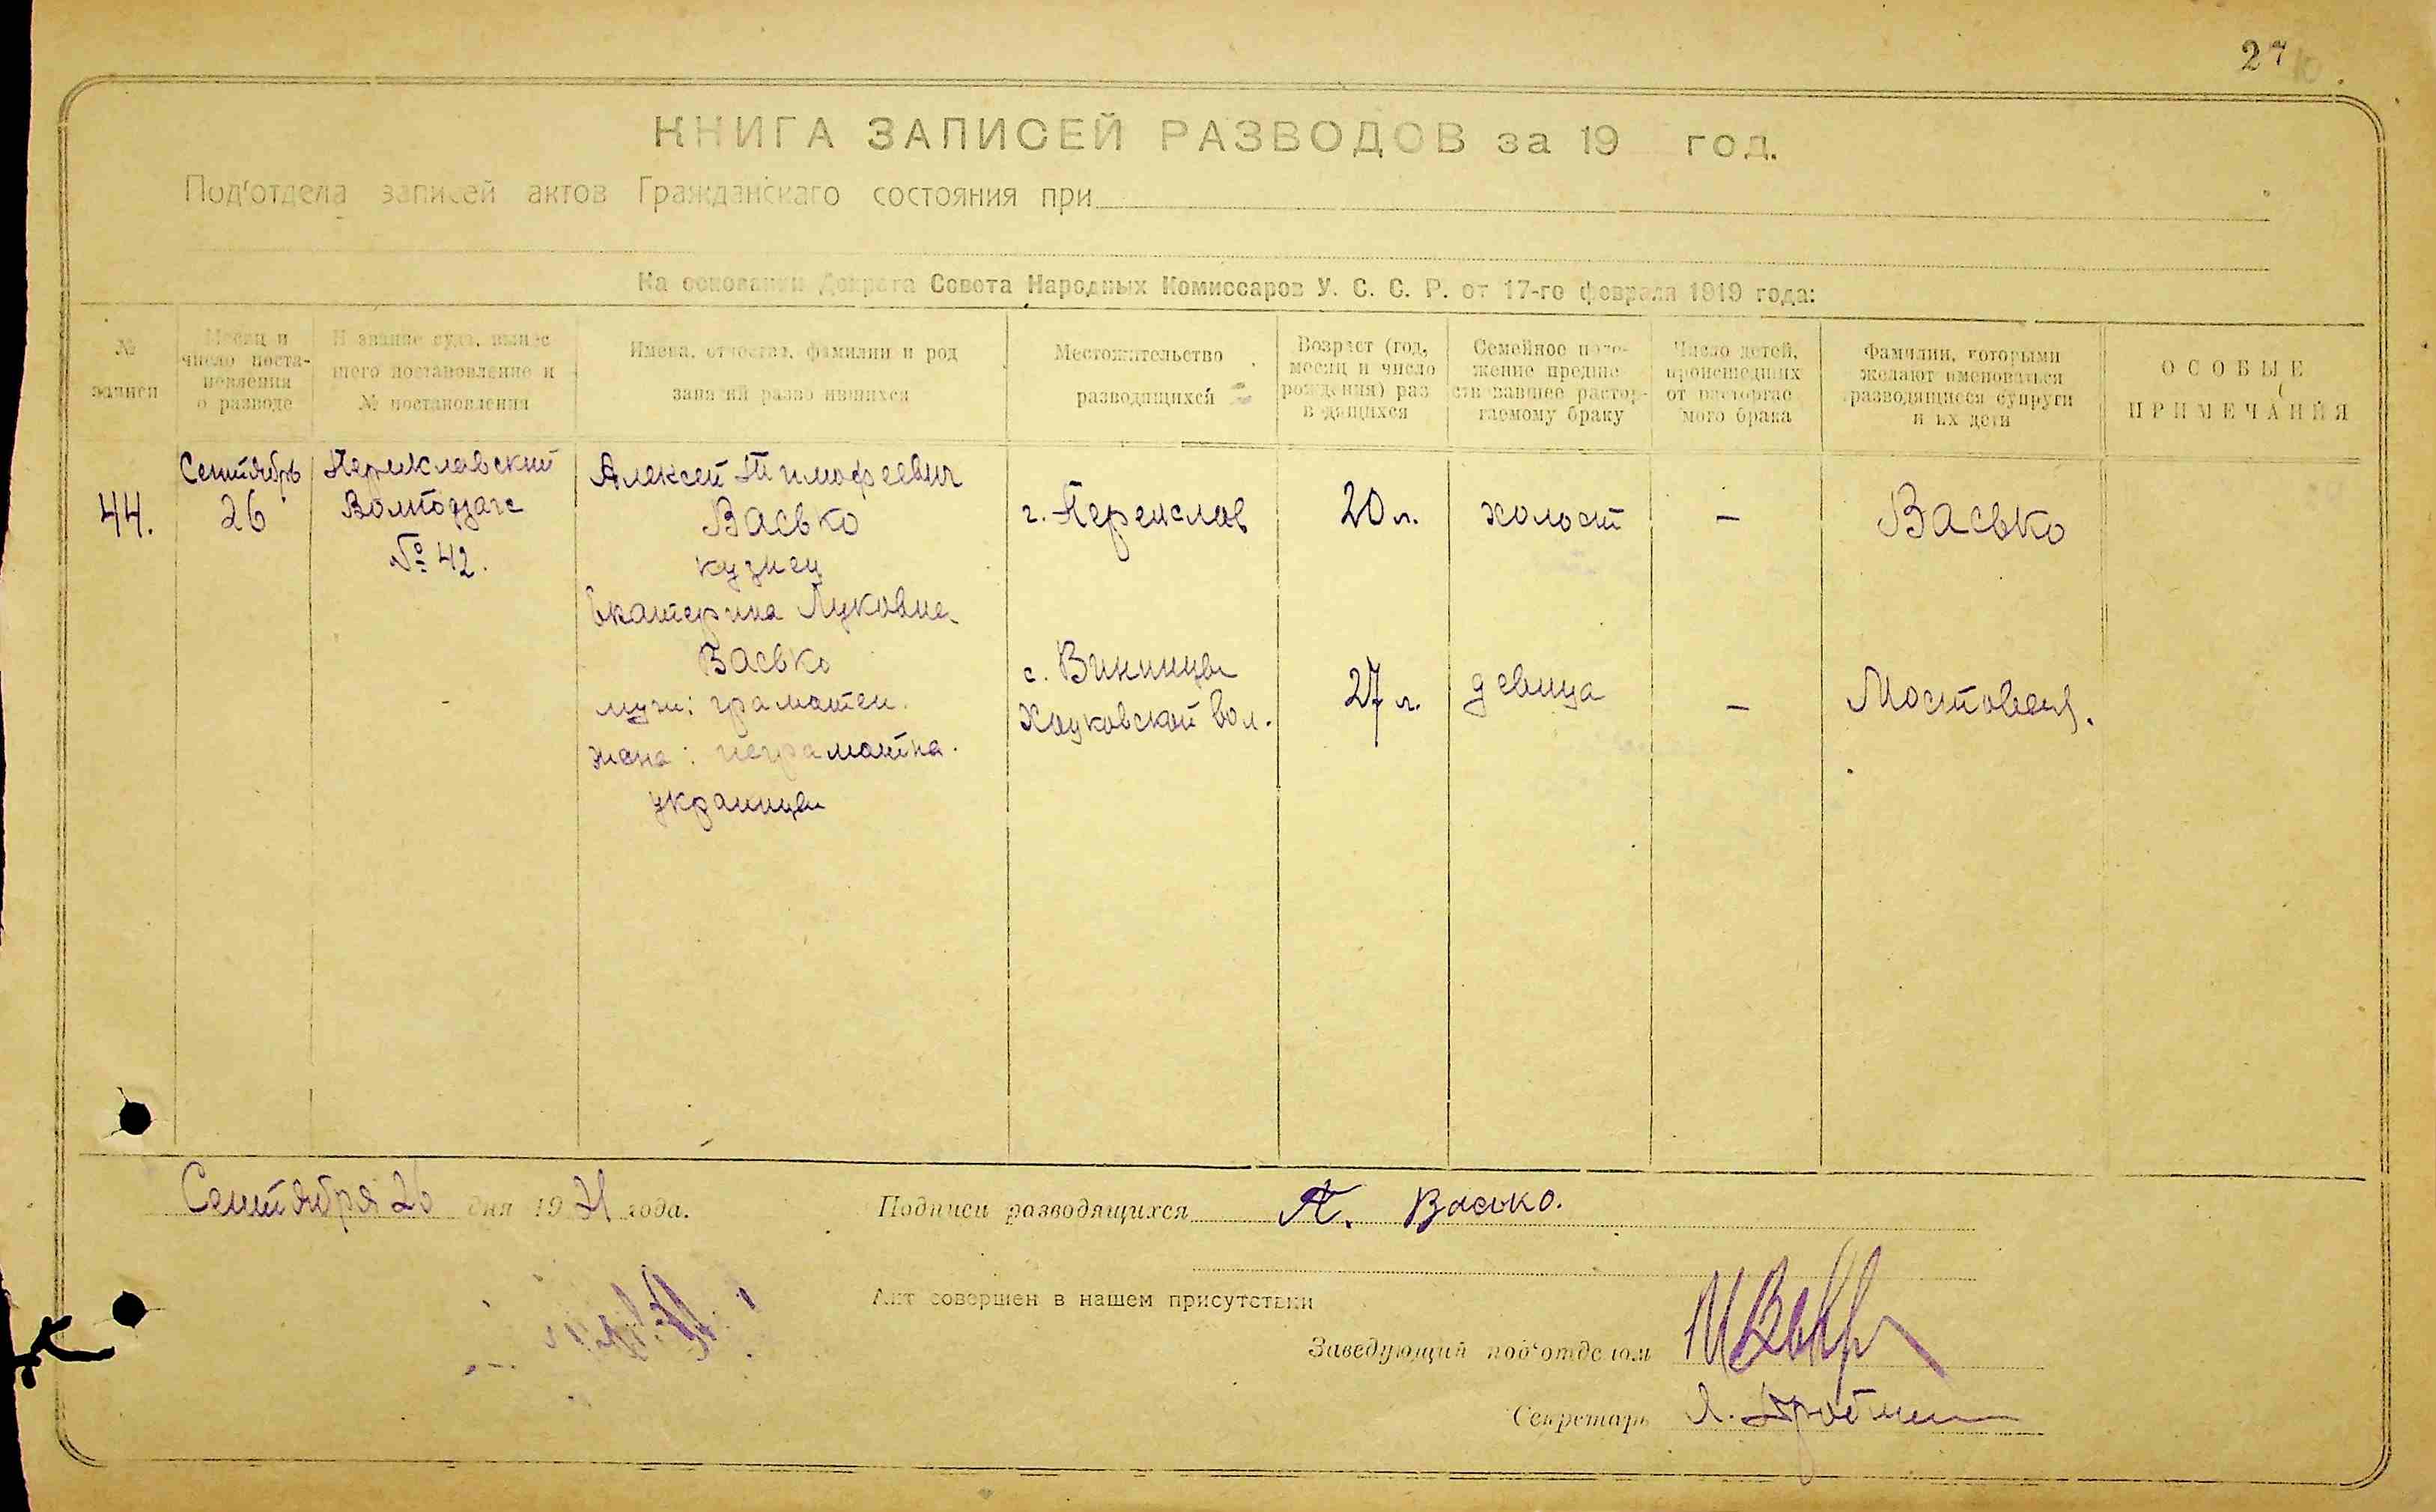 27
КНИГА ЗАПИСЕЙ РАЗВОДОВ за 19 год.
Под'отдела записей актов Гражданскаго состояния при
На основании Декрета Совета Народных Комиссаров У. С. С. Р. от 17-го февраля 1919 года:
№
записи
Месяц и
число поста-
новления
о разводе
Н звание суда, вынес
шего постановление и
№ постановления
Имена, отчества, фамилии и род
занятий разводившихся
Местожительство
разводящихся
Возраст (год,
месяц и число
рождения) раз
в дящихся
Семейное поло-
жение предше
ств вавшее растор-
гаемому браку
Число детей,
происшедших
от расторгае
мого брака
Фамилии, которыми
желают именоваться
разводящиеся супруги
и их дети
ОСОБЫЕ
ПРИМЕЧАНИЯ
44.
Сентябрь
26
Переяславский
№ 42.
Алексей Тимофеевич
Васько
кузнец
Екатерина Луковна
Васько
муж: грамотен.
жена: неграмотна.
украинцы
г. Переяслав
с. Виницы
Хоцковской вол.
20 л.
27 л.
холост
девица
–
–
Васько
Мостовец.
Сентября 26 дня 1921 года.
Подписи разводящихся А. Васько.
Акт совершен в нашем присутствии
Заведующий под'отделом
Секретарь